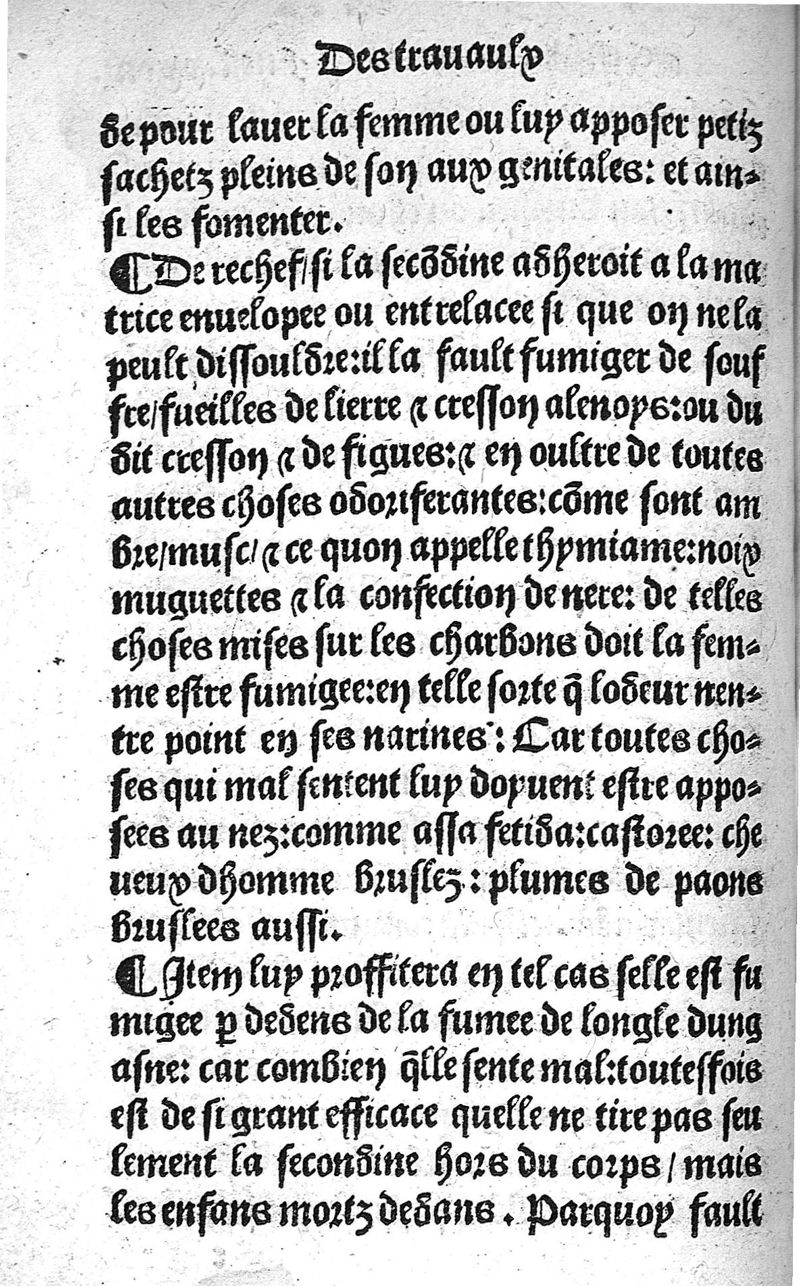 Des trauaulx
de pour lauer la femme ou luy apposer petiz
sachetz pleins de son aux genitales: et ain-
si les fomenter.
¶ De rechef/si la secōdine adheroit a la ma
trice enuelopee ou entrelacee si que on ne la
peult dissouldre:il la fault fumiger de souf
fre/fueilles de lierre ⁊ cresson alenoys:ou du
dit cresson ⁊ de figues:⁊ en oultre de toutes
autres choses odoriferantes:cōme sont am
bre/musc/⁊ ce quon appelle thymiame:noix
muguettes ⁊ la confection de nere: de telles
choses mises sur les charbons doit la fem-
me estre fumigee:en telle sorte q̄ lodeur nen-
tre point en ses narines: Car toutes cho-
ses qui mal sentent luy doyuent estre appo-
sees au nez:comme assa fetida:castoree: che
ueux dhomme bruslez: plumes de paons
bruslees aussi.
¶ Item luy proffitera en tel cas selle est fu
migee ꝑ dedens de la fumee de longle dung
asne: car combien q̄lle sente mal:toutesfois
est de si grant efficace quelle ne tire pas seu
lement la secondine hors du corps/mais
les enfans mortz dedans. Parquoy fault